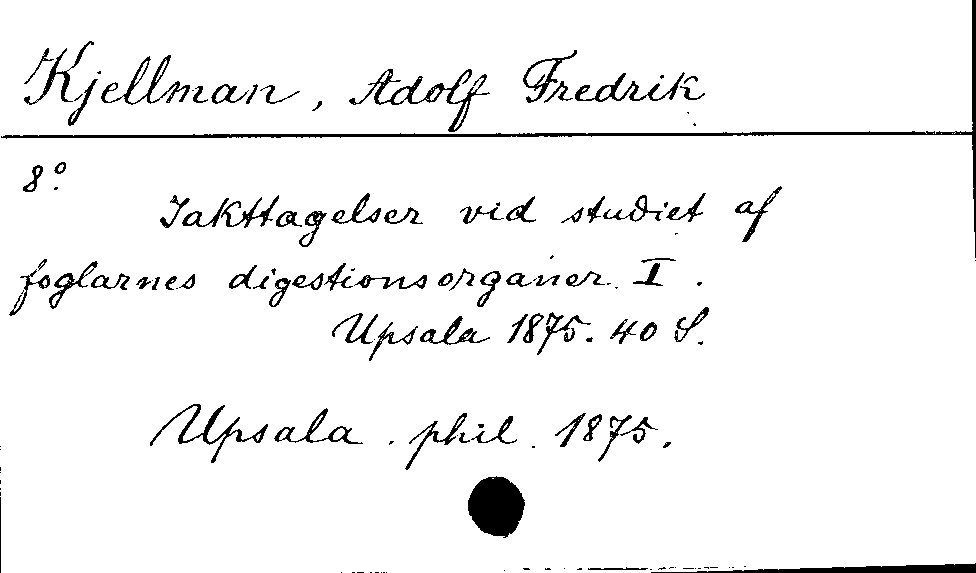 Kjellman, Adolf Fredrik
8°.
Iakttagelser vid studiet af
foglarnes digestionsorganer. I.
Upsala 1875. 40 S.
Upsala. phil. 1875.